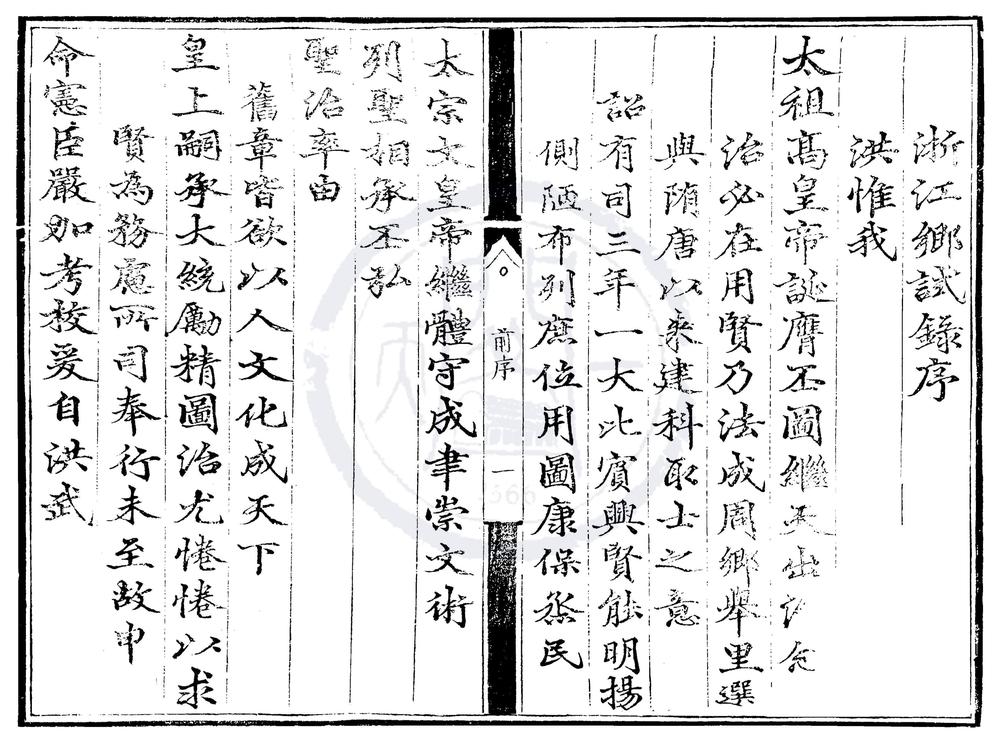 浙江鄉試錄序
洪惟我
太祖高皇帝誕膺丕圖繼天出
治必在用賢乃法成周鄉舉里選
與隋唐以來建科取士之意
詔有司三年一大比賓興賢能明揚
側陋布列庶位用圖康保烝民
前序
一
太宗文皇帝繼體守成聿崇文術
列聖相承丕弘
聖治率由
舊章皆欲以人文化成天下
皇上嗣承大統勵精圖治尤惓惓以求
賢為務慮所司奉行未至敕申
命憲臣嚴加考校爰自洪武